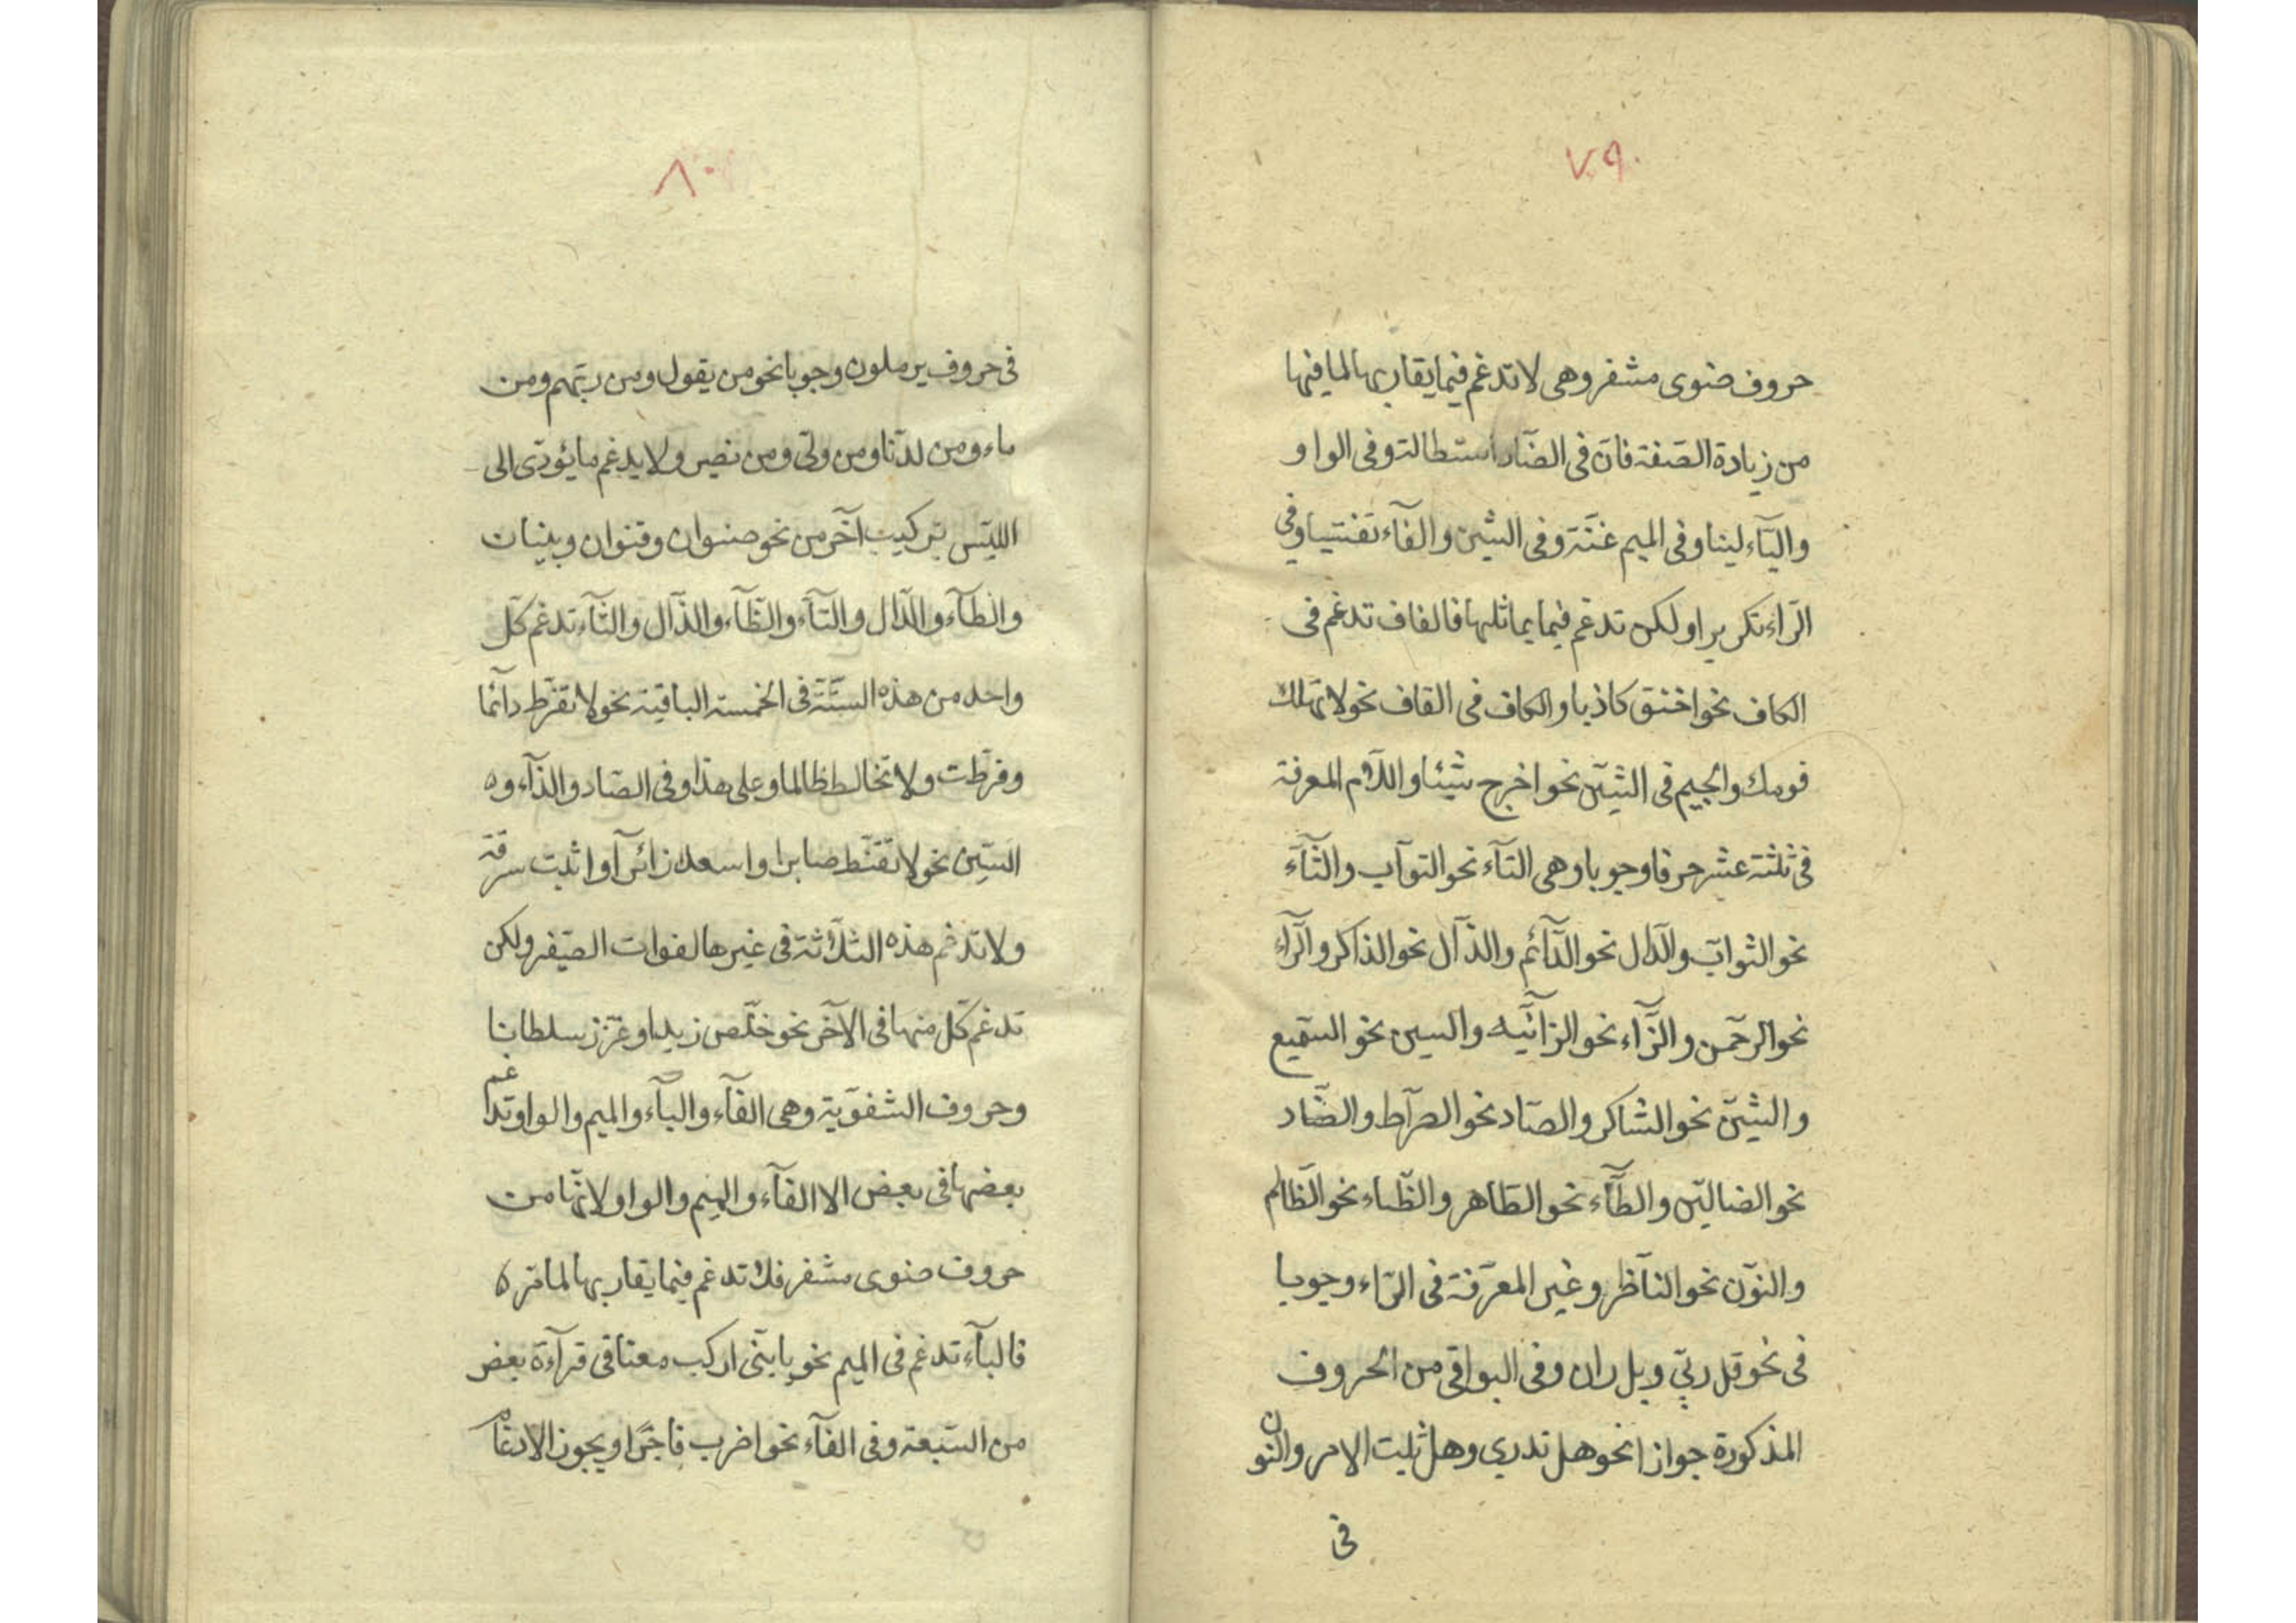 ٧٩
حروف ضوى مشفر وهى لا تدغم فيما يقاربها لما فيها
من زيادة الصّفة فانّ فى الضّاد استطالة وفى الواو
واليآء لينا وفى الميم غنّة وفى الشّين والفآء تفشيا وفى
الرّاء تكريرا ولكن تدغم فيما يماثلها فالقاف تدغم فى
الكاف نحو اخنق كاذبا والكاف فى القاف نحو لا تهلك
قومك والجيم فى الشّين نحو اخرج شيئا واللاّم المعرفة
فى ثلثة عشر حرفا وجوبا وهى التآء نحو التوّاب والثآء
نحو الثواب والدّال نحو الدّآئم والذّال نحو الذاكر والرّآء
نحو الرحمن والزّآء نحو الزانية والسين نحو السميع
والشّين نحو الشاكر والصّاد نحو الصرّاط والضّاد
نحو الضالّين والطّآء نحو الطّاهر والظّاء نحو الظّالم
والنّون نحو النّاظر وغير المعرّفة فى الرّاء وجوبا
فى نحو قل ربّى وبل ران وفى البواقى من الحروف
المذكورة جوازا نحو هل تدري وهل ثبت الامر والنون
فى
٨٠
فى حروف يرملون وجوبا نحو من يقول ومن ربّهم ومن
ماء ومن لدنّا ومن ولىّ ومن نصير ولا يدغم ما يؤدّى الى
اللبس بتركيب آخر من نحو صنوان وقنوان وبنيان
والطآء والدّال والتّآء والظّآء والذّال والثّآء تدغم كلّ
واحد من هذه الستّة فى الخمسة الباقية نحو لا تفرّط دآئما
وفرّطت ولا تخالط ظالما وعلى هذا وفى الصّاد والزّآء و
السّين نحو لا تقنط صابرا واسعد زائرا واثبت سرقة
ولا تدغم هذه الثلاثة فى غيرها لفوات الصّفير ولكن
تدغم كلّ منها فى الآخر نحو خلّص زيدا وعزّز سلطانا
وحروف الشفويّة وهى الفآء والبآء والميم والواو تدغم
بعضها فى بعض الا الفآء والميم والواو لانّها من
حروف ضوى مشفر فلا تدغم فيما يقاربها لما مرّ
فالبآء تدغم فى الميم نحو يا بنىّ اركب معنا فى قرآءة بعض
من السّبعة وفى الفآء نحو اضرب فاجرا ويجوز الادغام